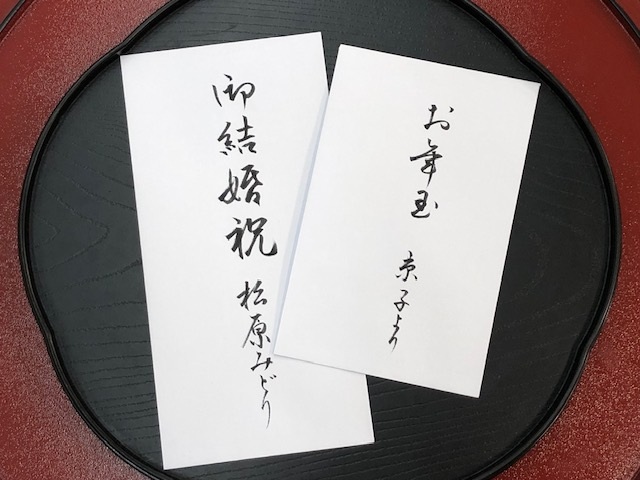 御結婚祝
松原みどり
お年玉
京子より